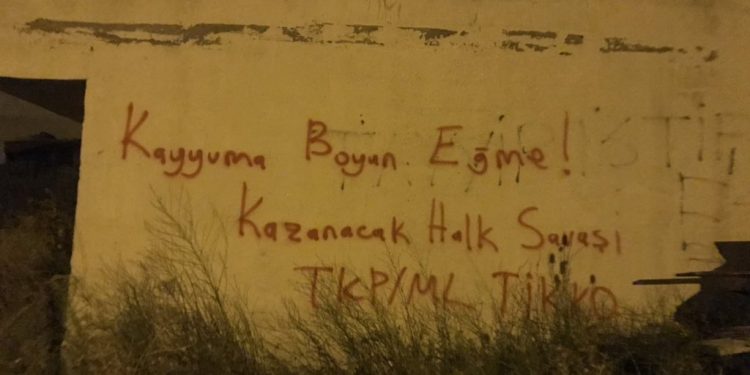 Kayyuma Boyun Eğme!
Kazanacak Halk Savaşı
TKP/ML TİKKO